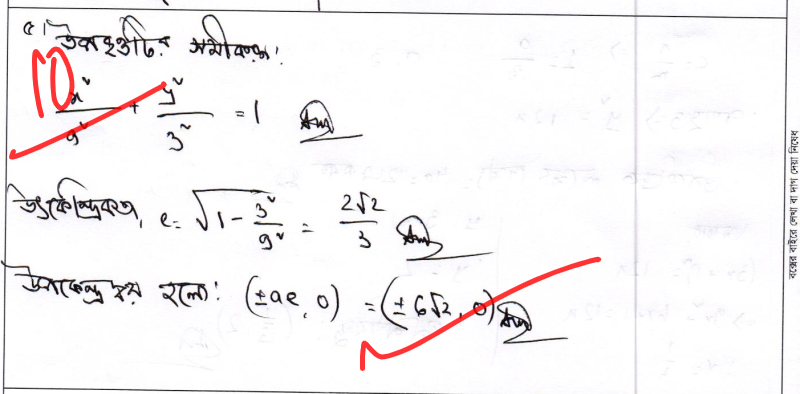 ৫। উপবৃত্তটির সমীকরণ:
10
x²/9² + y²/3² = 1 Ans
উৎকেন্দ্রিকতা, e = √(1 - 3²/9²) = 2√2/3 Ans
উপকেন্দ্র দ্বয় হলো: (±ae, 0) = (±6√2, 0) Ans
বক্সের বাইরে লেখা বা দাগ দেয়া নিষেধ